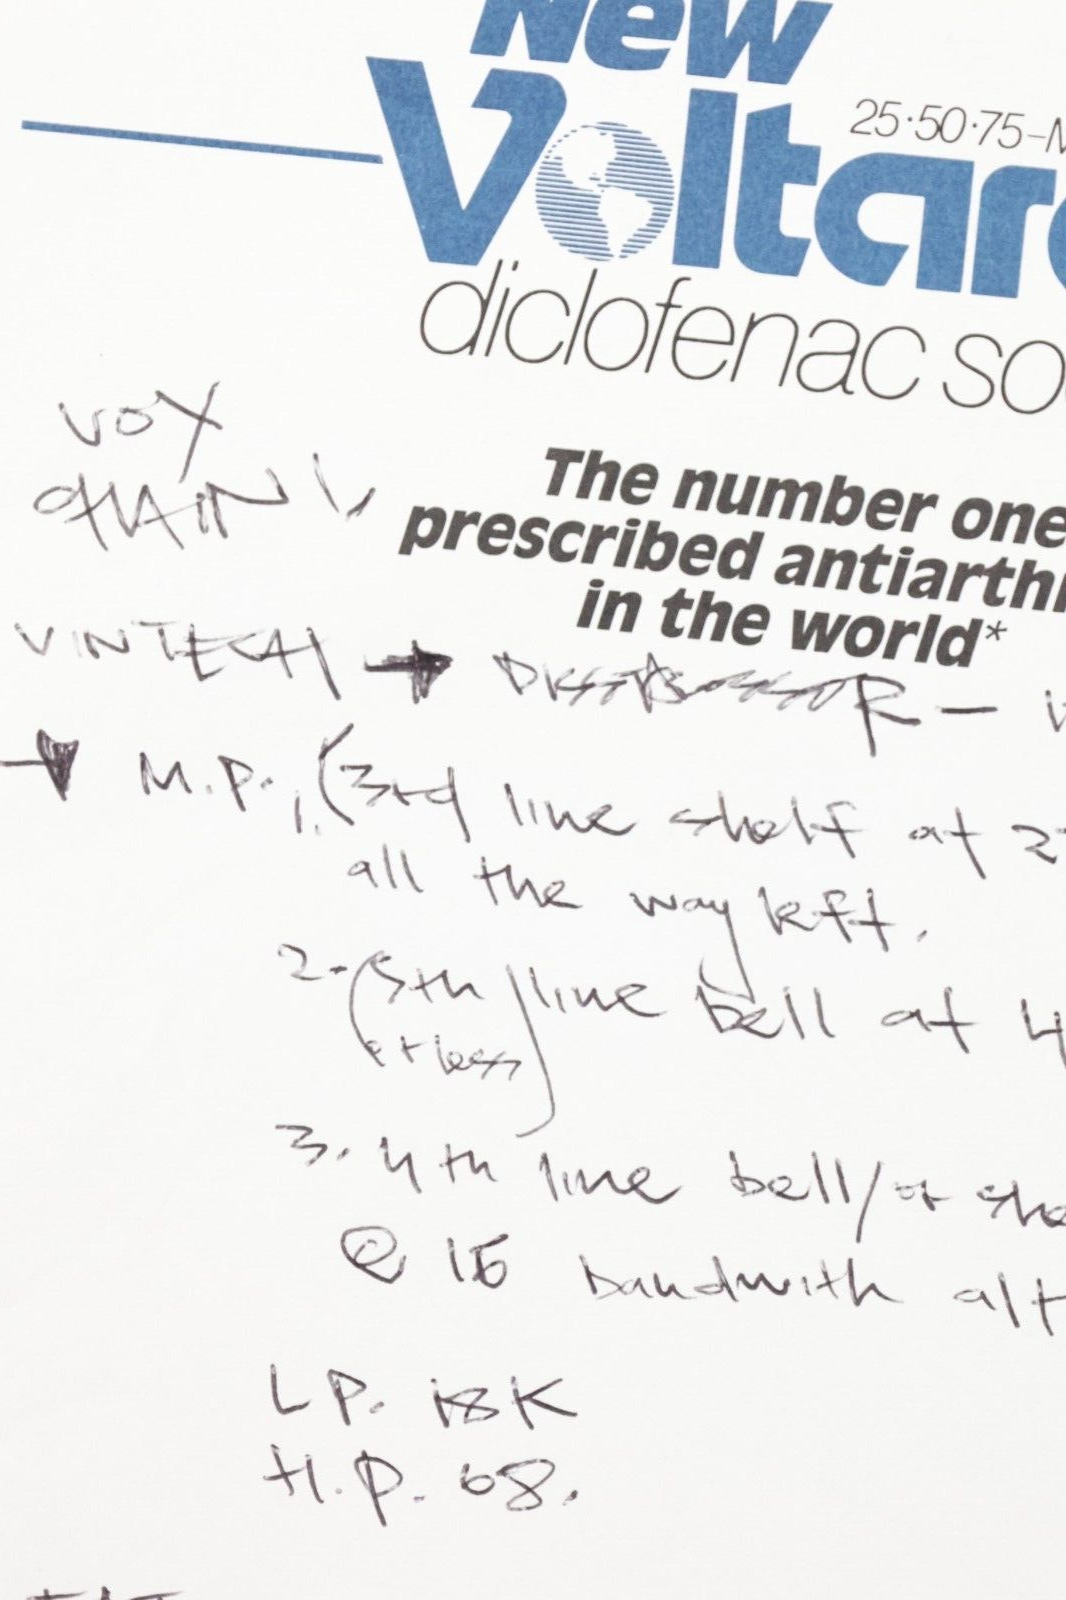 New
25·50·75–M
Voltar
diclofenac so
The number one
prescribed antiarth
in the world*
VOX
CHAIN
VINTECH → –
→ M.P., 1. (3rd line shelf at 2
all the way left.
2. (5th) line bell at 4
3. 4th line bell/or she
@ 15 bandwith alt
L P. 18K
H.P. 68.